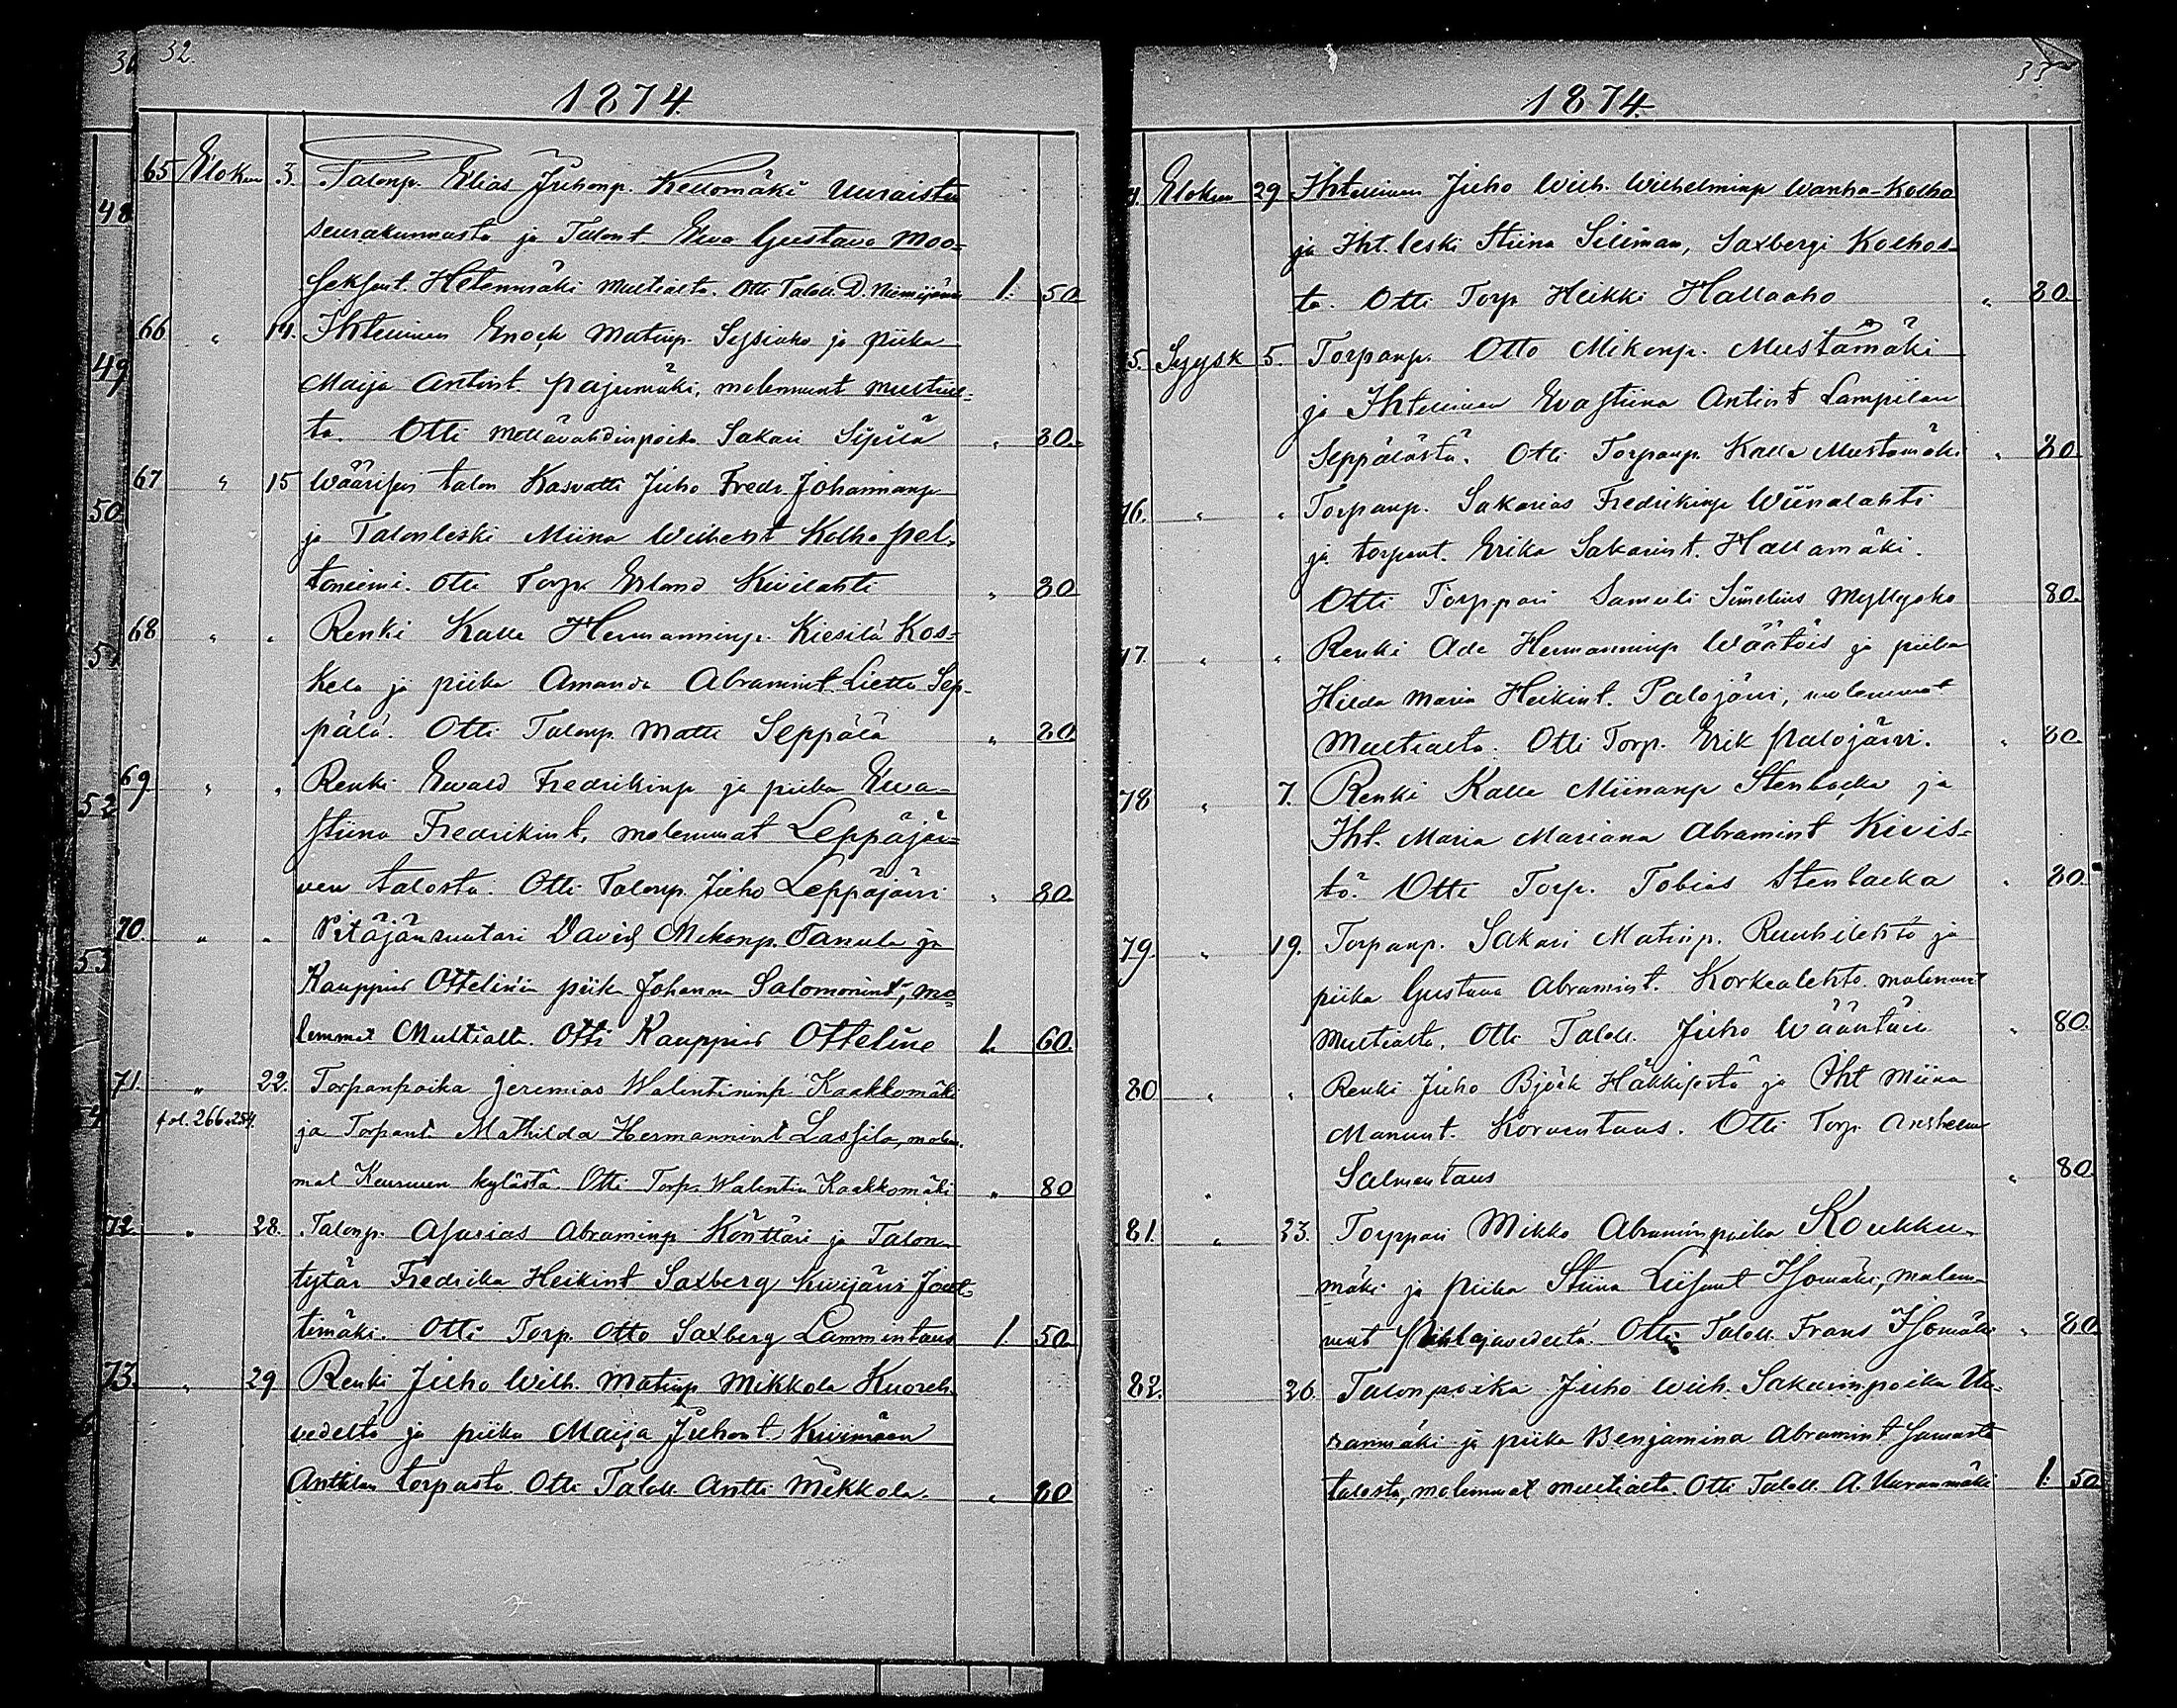 32.
1874.
65 Elokuu 3. Talonp. Elias Juhonp. Kellomäki Uuraisten
seurakunnasta ja Talont. Ewa Gustava Moo=
seksent. Hetemäki Multialta. Otti Taloll. D. Niemijärvi 1: 50
66 " 14. Ihtellinen Enock Matinp. Sysiaho ja piika
Maija Antint. Pajumäki, molemmat Multial=
ta. Otti Sakari Sipilä " 80.
67 " 15 Wäärisen talon Kasvatti Juho Fredr. Johanninp.
ja Talonleski Miina Wilhent Kolho Pel=
toniemi. Otti Torp. Erland Kivilahti " 80
68 " " Renki Kalle Hermanninp. Kiesilä Kos=
kela ja piika Amanda Abramint. Lietto Sep=
pälä. Otti Talonp. Matti Seppälä " 80
69 " " Renki Ewald Fredrikinp ja piika Ewa=
stiina Fredrikint, molemmat Leppäjär=
ven talosta. Otti Talonp. Juho Leppäjärvi " 80.
70. " " Pitäjänsuutari David Mikonp. Tanula ja
Kauppias Ottelinin piika Johanna Salomonint, mo=
lemmat Multialta. Otti Kauppias Otteline 1. 60.
71. " 22. Torpanpoika Jeremias Walentininp Kaakkomäki
fol. 266 a 254. ja Torpant. Mathilda Hermannint Lassila, molem.
mat Keuruun kylästä. Otti Torp. Walentin Kaakkomäki " 80
72. " 28. Talonp. Asarias Abraminp Könttäri ja Talon=
tytär Fredrika Heikint Saxberg Kivijärvi Jout=
timäki. Otti Torp. Otto Saxberg Lammintaus 1. 50.
73. " 29 Renki Juho Wilh. Matinp Mikkola Kuoreh.
vedeltä ja piika Maija Juhont. Kivimäen
Anttilan torpasta. Otti Taloll. Antti Mikkola. " 80
33
1874.
Elokuu 29 Ihtellinen Juho Wilh. Wilhelminp Wanha-Kolho
ja Iht. leski Stiina Siliman, Saxbergi Kolhos=
ta. Otti Torp Heikki Hallaaho " 80.
5. Syysk 5. Torpanp. Otto Mikonp. Mustamäki
ja Ihtellinen Ewastiina Antint Lampilan
Seppälästä. Otti Torpanp. Kalle Mustamäki " 80
76. " " Torpanp. Sakarias Fredrikinp Wiinalahti
ja torpant. Erika Sakarint. Hallamäki.
Otti Torppari Samuli Simelius Myllyaho 80.
77. " " Renki Ade Hermanninp Wäätäis ja piika
Hilda Maria Heikint. Palojärvi, molemmat
Multialta. Otti Torp. Erik Palojärvi. " 80.
78 " 7. Renki Kalle Miinanp Stenbacka ja
Iht. Maria Mariana Abramint Kivis=
tö. Otti Torp. Tobias Stenbacka " 80.
79. " 19. Torpanp. Sakari Matinp. Ruuhilehto ja
piika Gustava Abramint. Korkealehto molemmat
Multialta. Otti Taloll. Juho Wääntäin " 80.
80 " " Renki Juho Björk Häkkisestä ja Iht Miina
Manunt. Korventaus. Otti Torp. Anshelm
Salmentaus " 80.
81. " 23. Torppari Mikko Abraminpoika Koukku=
mäki ja piika Stiina Liisant Isomäki, molem=
mat Pihlajavedeltä. Otti Taloll. Frans Isomäki " 80
82. 26. Talonpoika Juho Wilh. Sakarinpoika Uu=
ranmäki ja piika Benjamina Abramint samasta
talosta, molemmat Multialta. Otti Taloll. A. Uuranmäki 1: 50